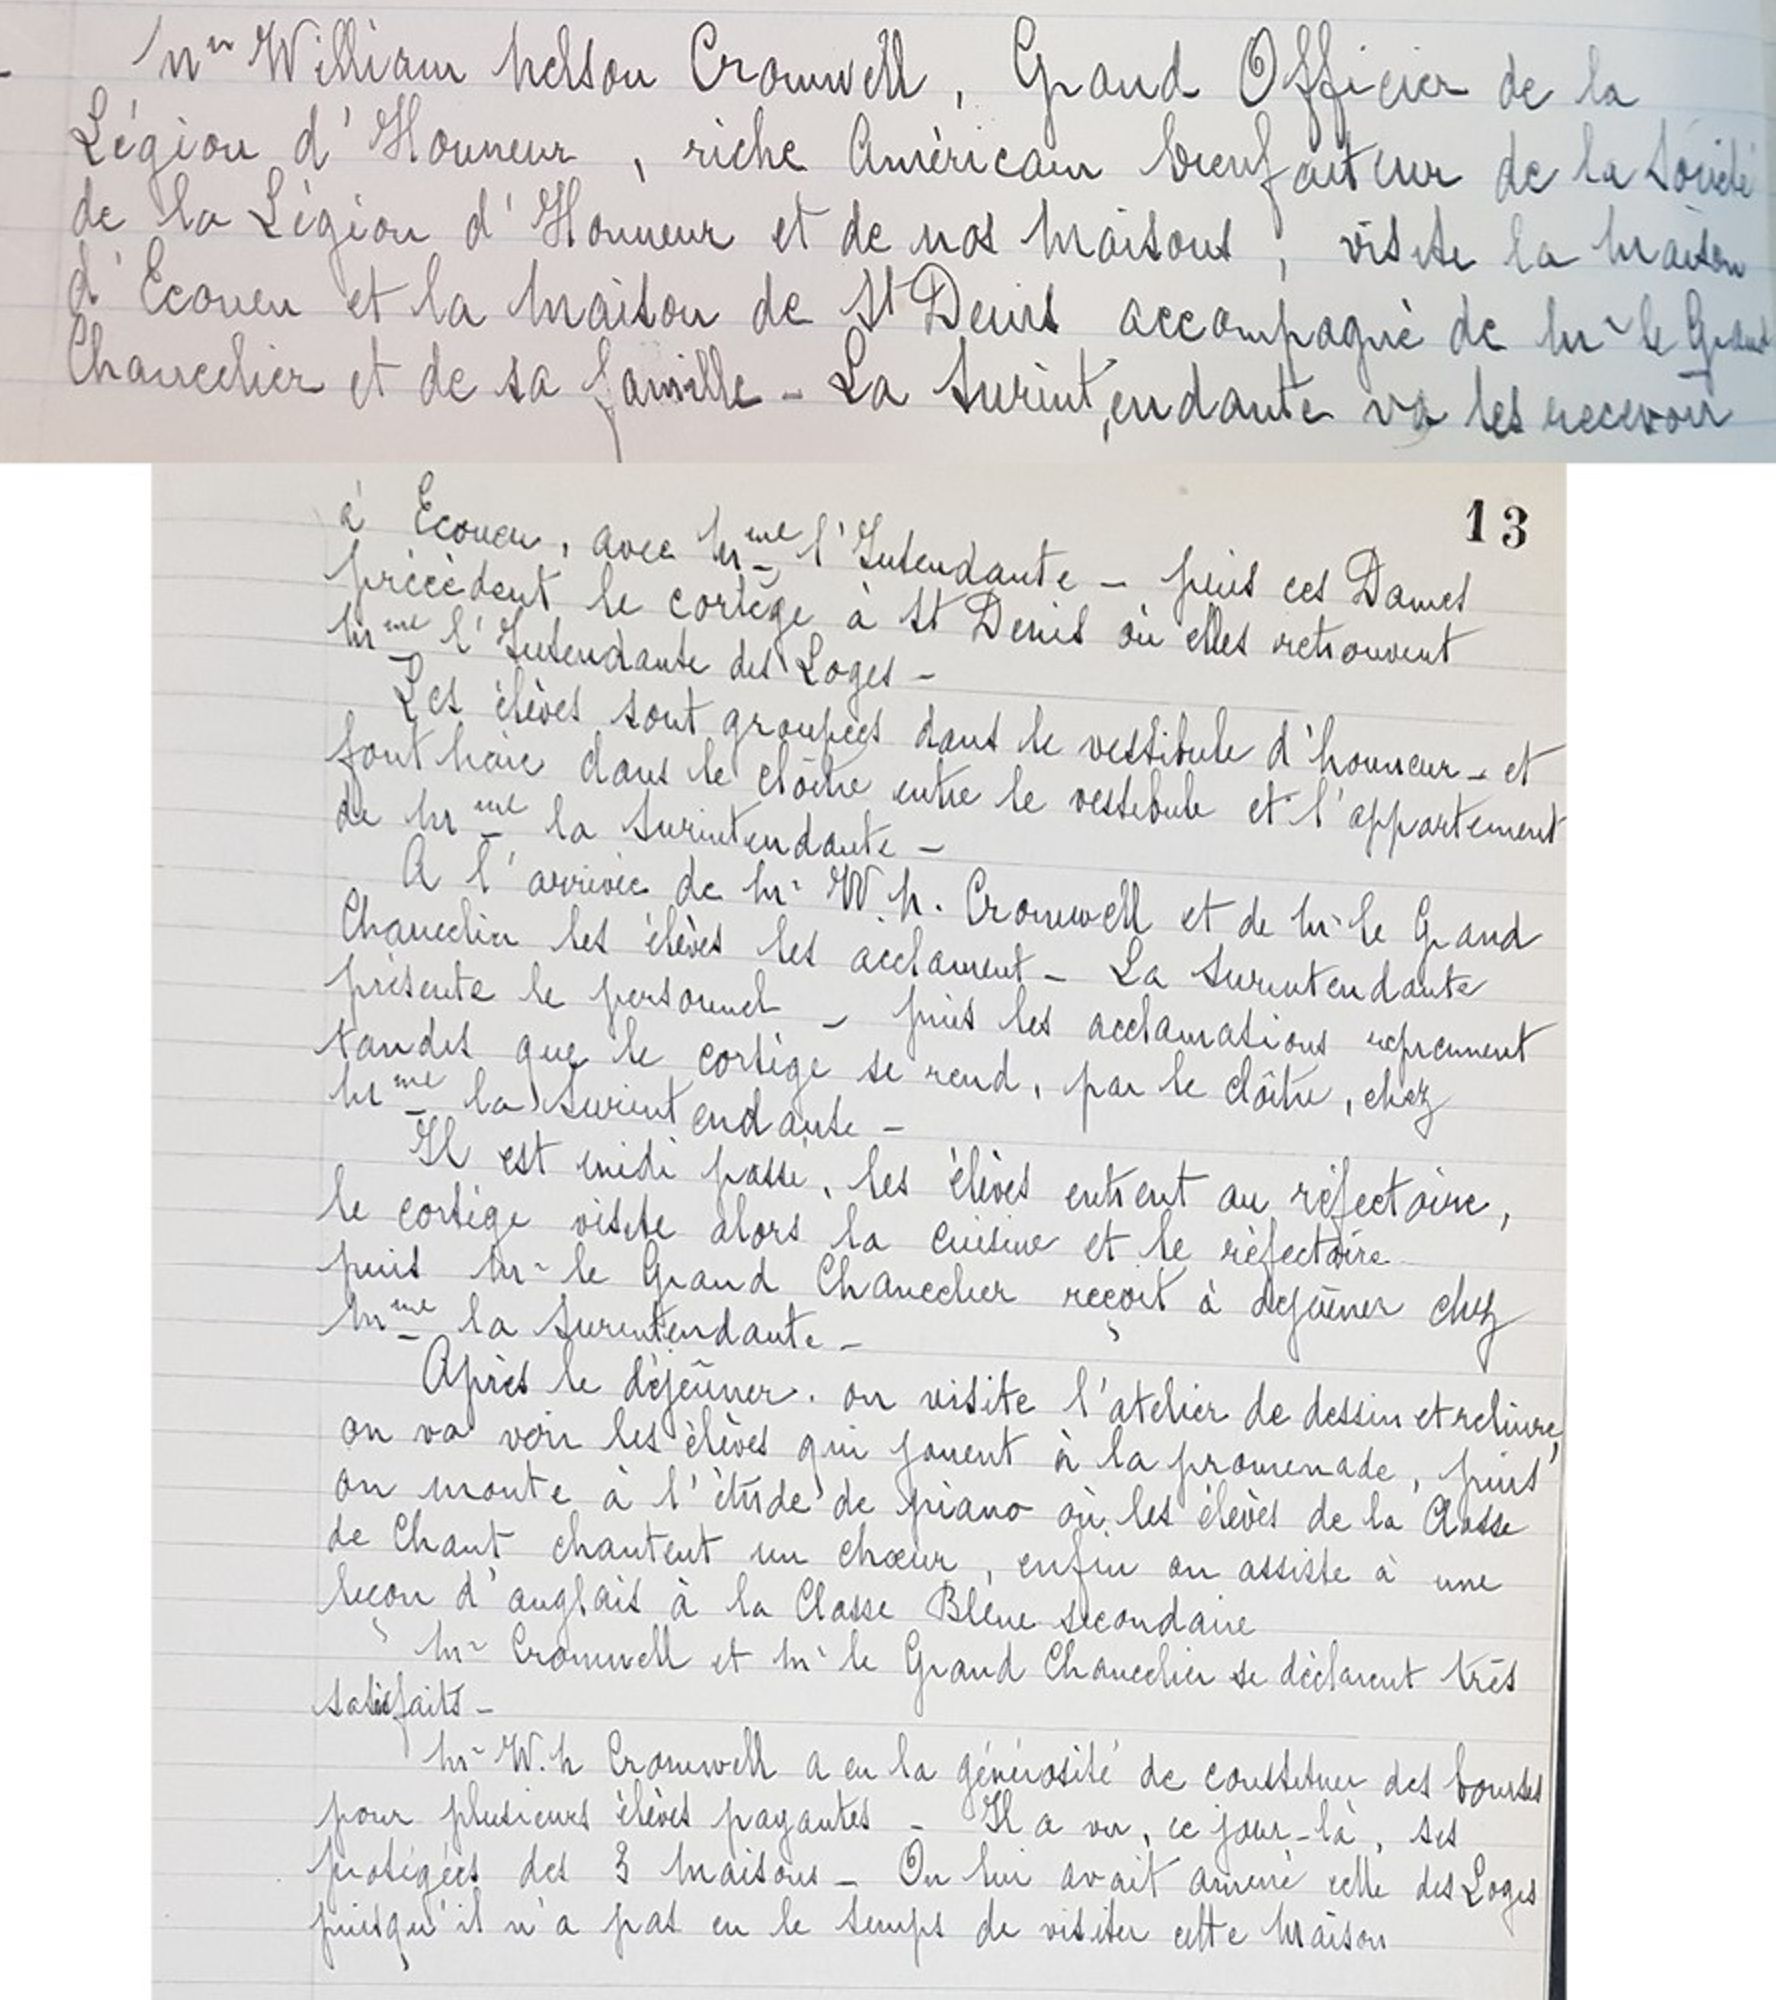 Mr William Nelson Cromwell, Grand Officier de la
Légion d'Honneur, riche Américain bienfaiteur de la Société
de la Légion d'Honneur et de nos Maisons, visite la Maison
d'Ecouen et la Maison de St Denis accompagné de Mr le Grand
Chancelier et de sa famille - La Surintendante va les recevoir
13
à Ecouen, avec Mme l'Intendante - puis ces Dames
précèdent le cortège à St Denis où elles retrouvent
Mme l'Intendante des Loges -
Les élèves sont groupées dans le vestibule d'honneur - et
font haie dans le cloître entre le vestibule et l'appartement
de Mme la Surintendante -
A l'arrivée de Mr W. N. Cromwell et de Mr le Grand
Chancelier les élèves les acclament - La Surintendante
présente le personnel - puis les acclamations reprennent
tandis que le cortège se rend, par le cloître, chez
Mme la Surintendante -
Il est midi passé, les élèves entrent au réfectoire,
le cortège visite alors la cuisine et le réfectoire
puis Mr le Grand Chancelier reçoit à déjeûner chez
Mme la Surintendante -
Après le déjeûner. on visite l'atelier de dessin et reliure,
on va voir les élèves qui jouent à la promenade, puis
on monte à l'étude de piano où les élèves de la Classe
de Chant chantent un chœur, enfin on assiste à une
leçon d'anglais à la Classe Bleue secondaire
Mr Cromwell et Mr le Grand Chancelier se déclarent très
satisfaits -
Mr W. N Cromwell a eu la générosité de constituer des bourses
pour plusieurs élèves payantes - Il a vu, ce jour-là, ses
protégées des 3 Maisons - On lui avait amené celle des Loges
puisqu'il n'a pas eu le temps de visiter cette Maison